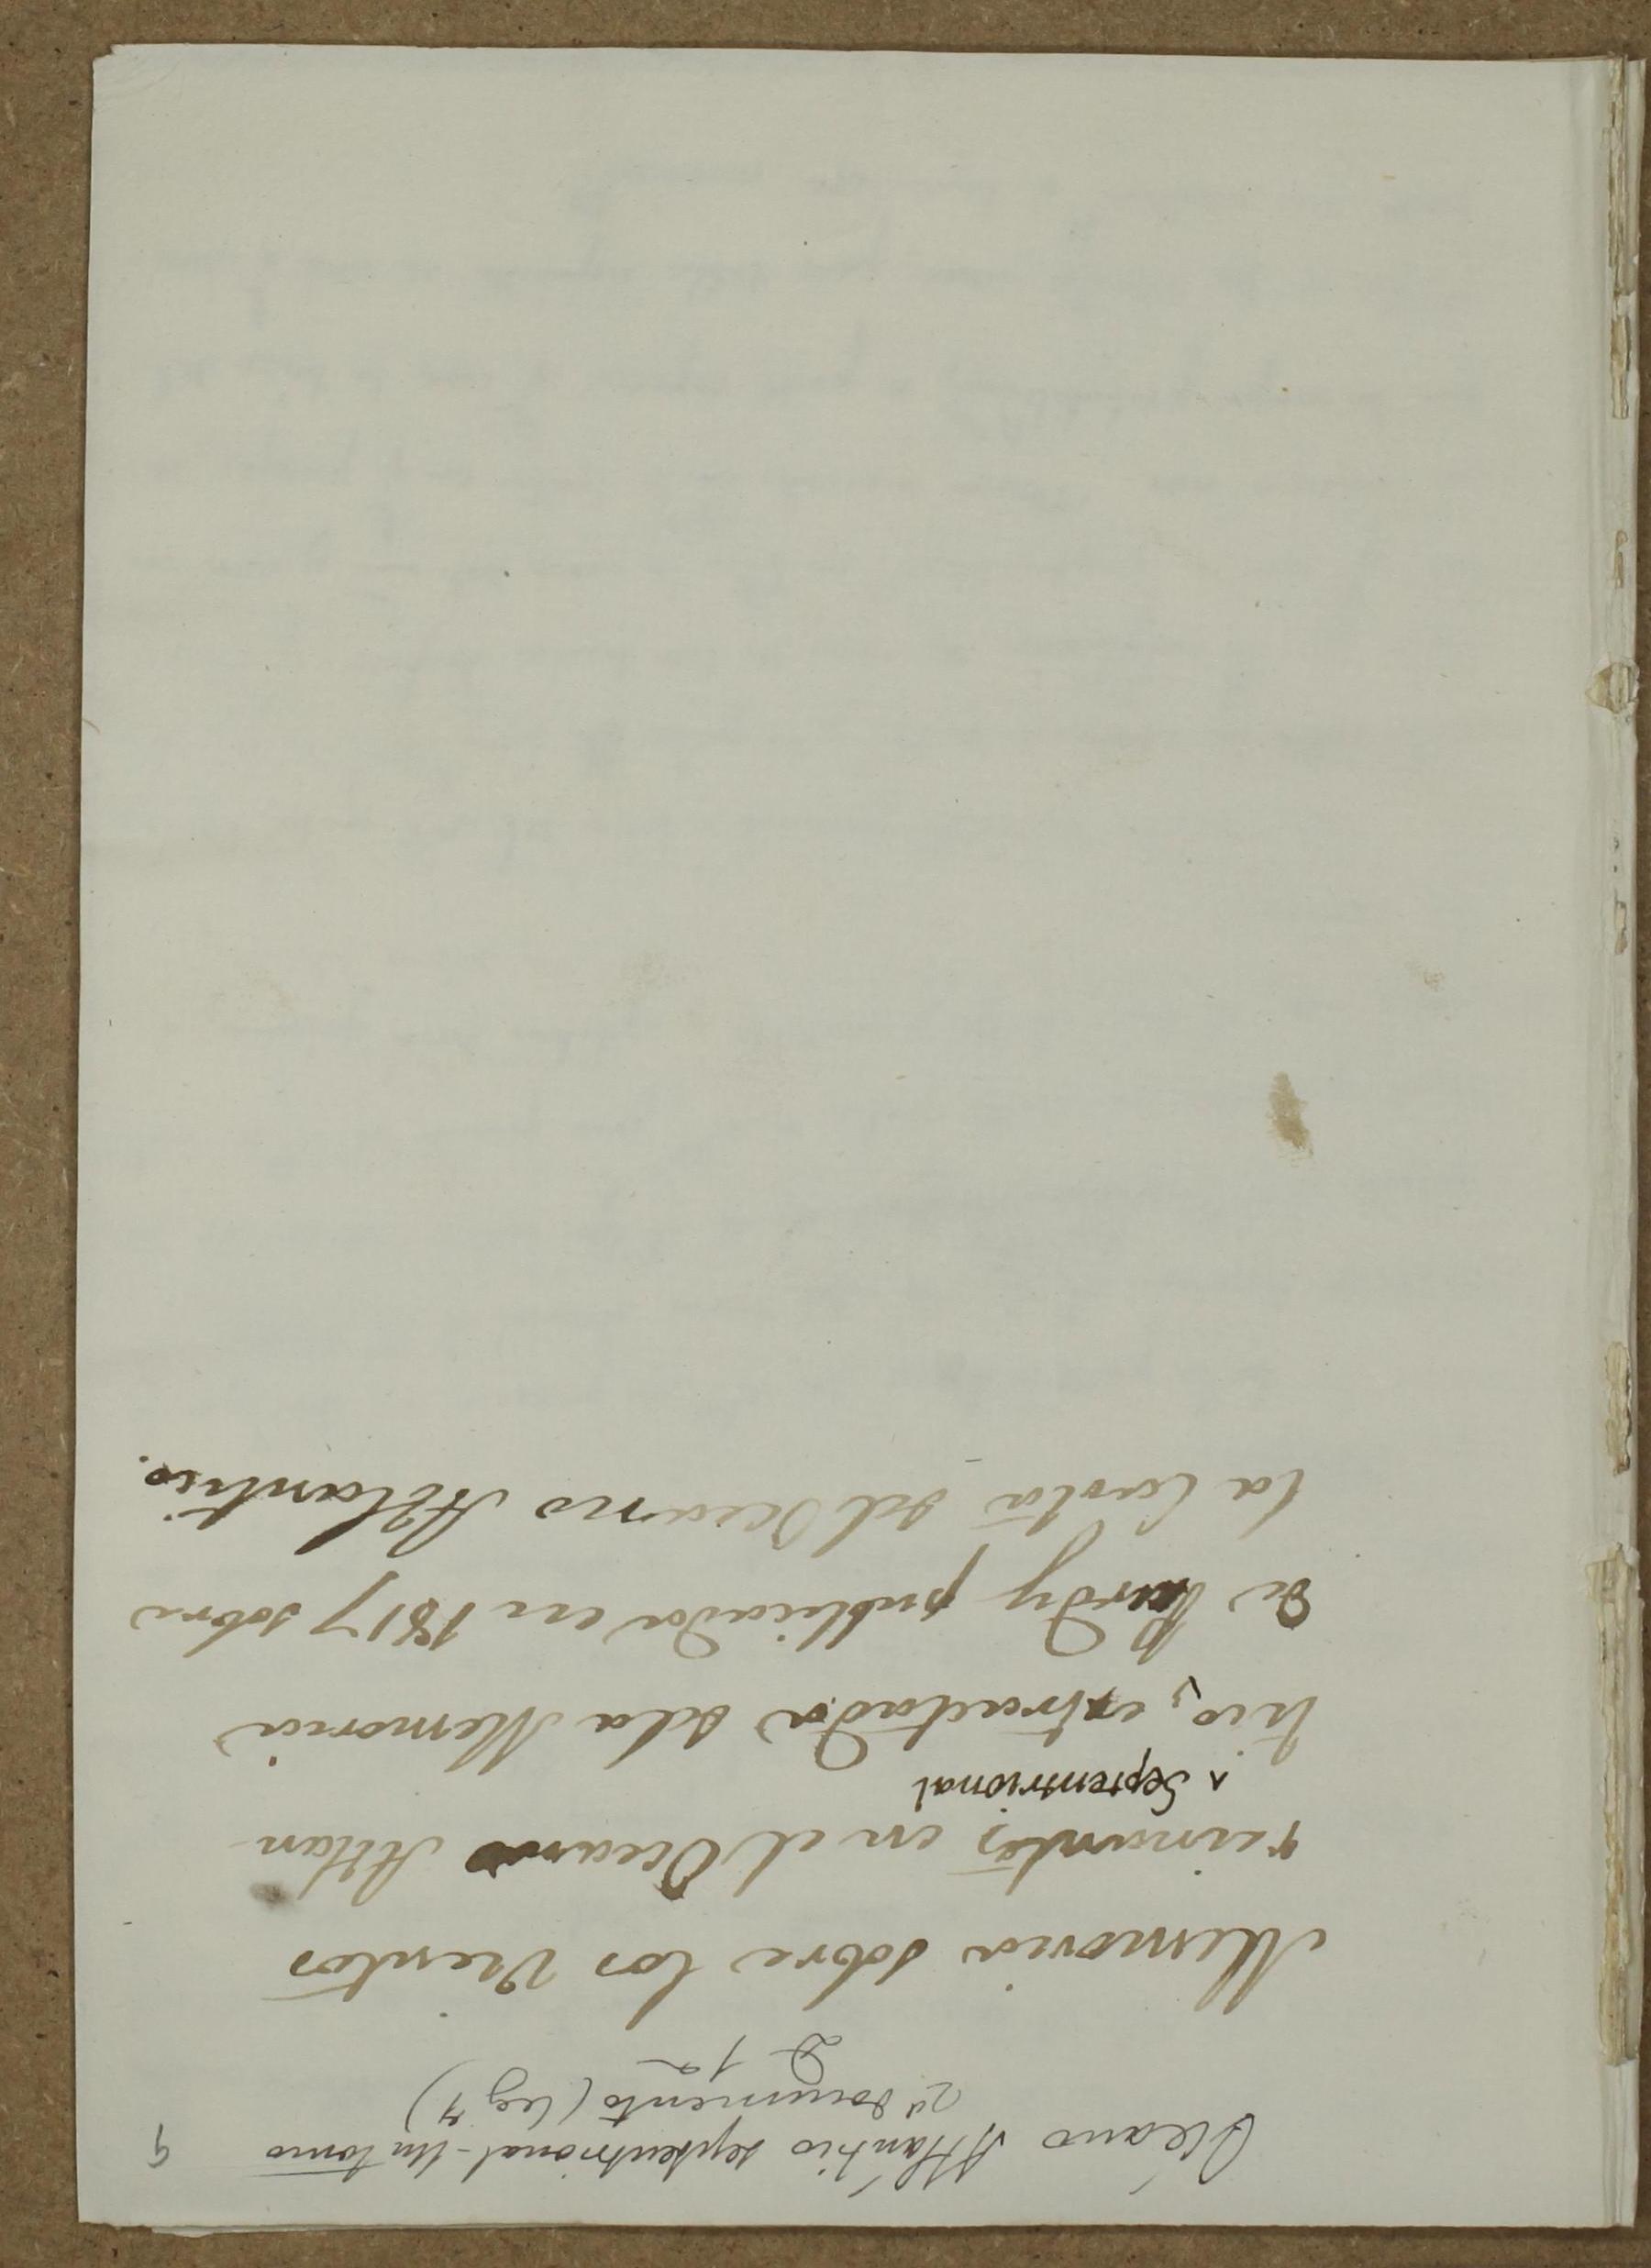 Océano Atlantico septentrional - Un tomo
9
2º documento (leg 4)
D 1ª
Memoria sobre los Vientos
reinantes en el Oceano Atlan-
^ Septentrional
tico, extractada de la Memoria
de Purdy publicada en 1817 sobre
la Carta del Oceano Atlantico.